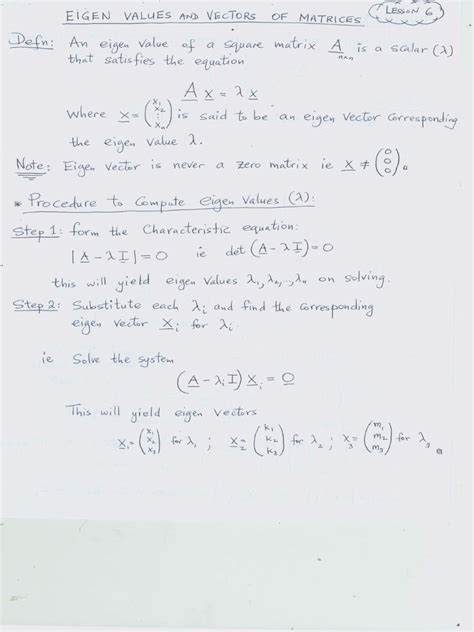 EIGEN VALUES AND VECTORS OF MATRICES LESSON 6
Defn: An eigen value of a square matrix A n×n is a scalar (λ)
that satisfies the equation
A x = λ x
where x = (x₁ x₂ ⋮ xₙ) is said to be an eigen vector corresponding
the eigen value λ.
Note: Eigen vector is never a zero matrix ie x ≠ (0 0 0).
* Procedure to Compute eigen values (λ):
Step 1: form the Characteristic equation:
|A - λI| = 0 ie det (A - λI) = 0
this will yield eigen values λ₁, λ₂, ..., λₙ on solving.
Step 2: Substitute each λᵢ and find the corresponding
eigen vector xᵢ for λᵢ.
ie Solve the system
(A - λᵢI) xᵢ = 0
This will yield eigen vectors
x₁ = (x₁ x₂ x₃) for λ₁ ; x₂ = (k₁ k₂ k₃) for λ₂ ; x₃ = (m₁ m₂ m₃) for λ₃